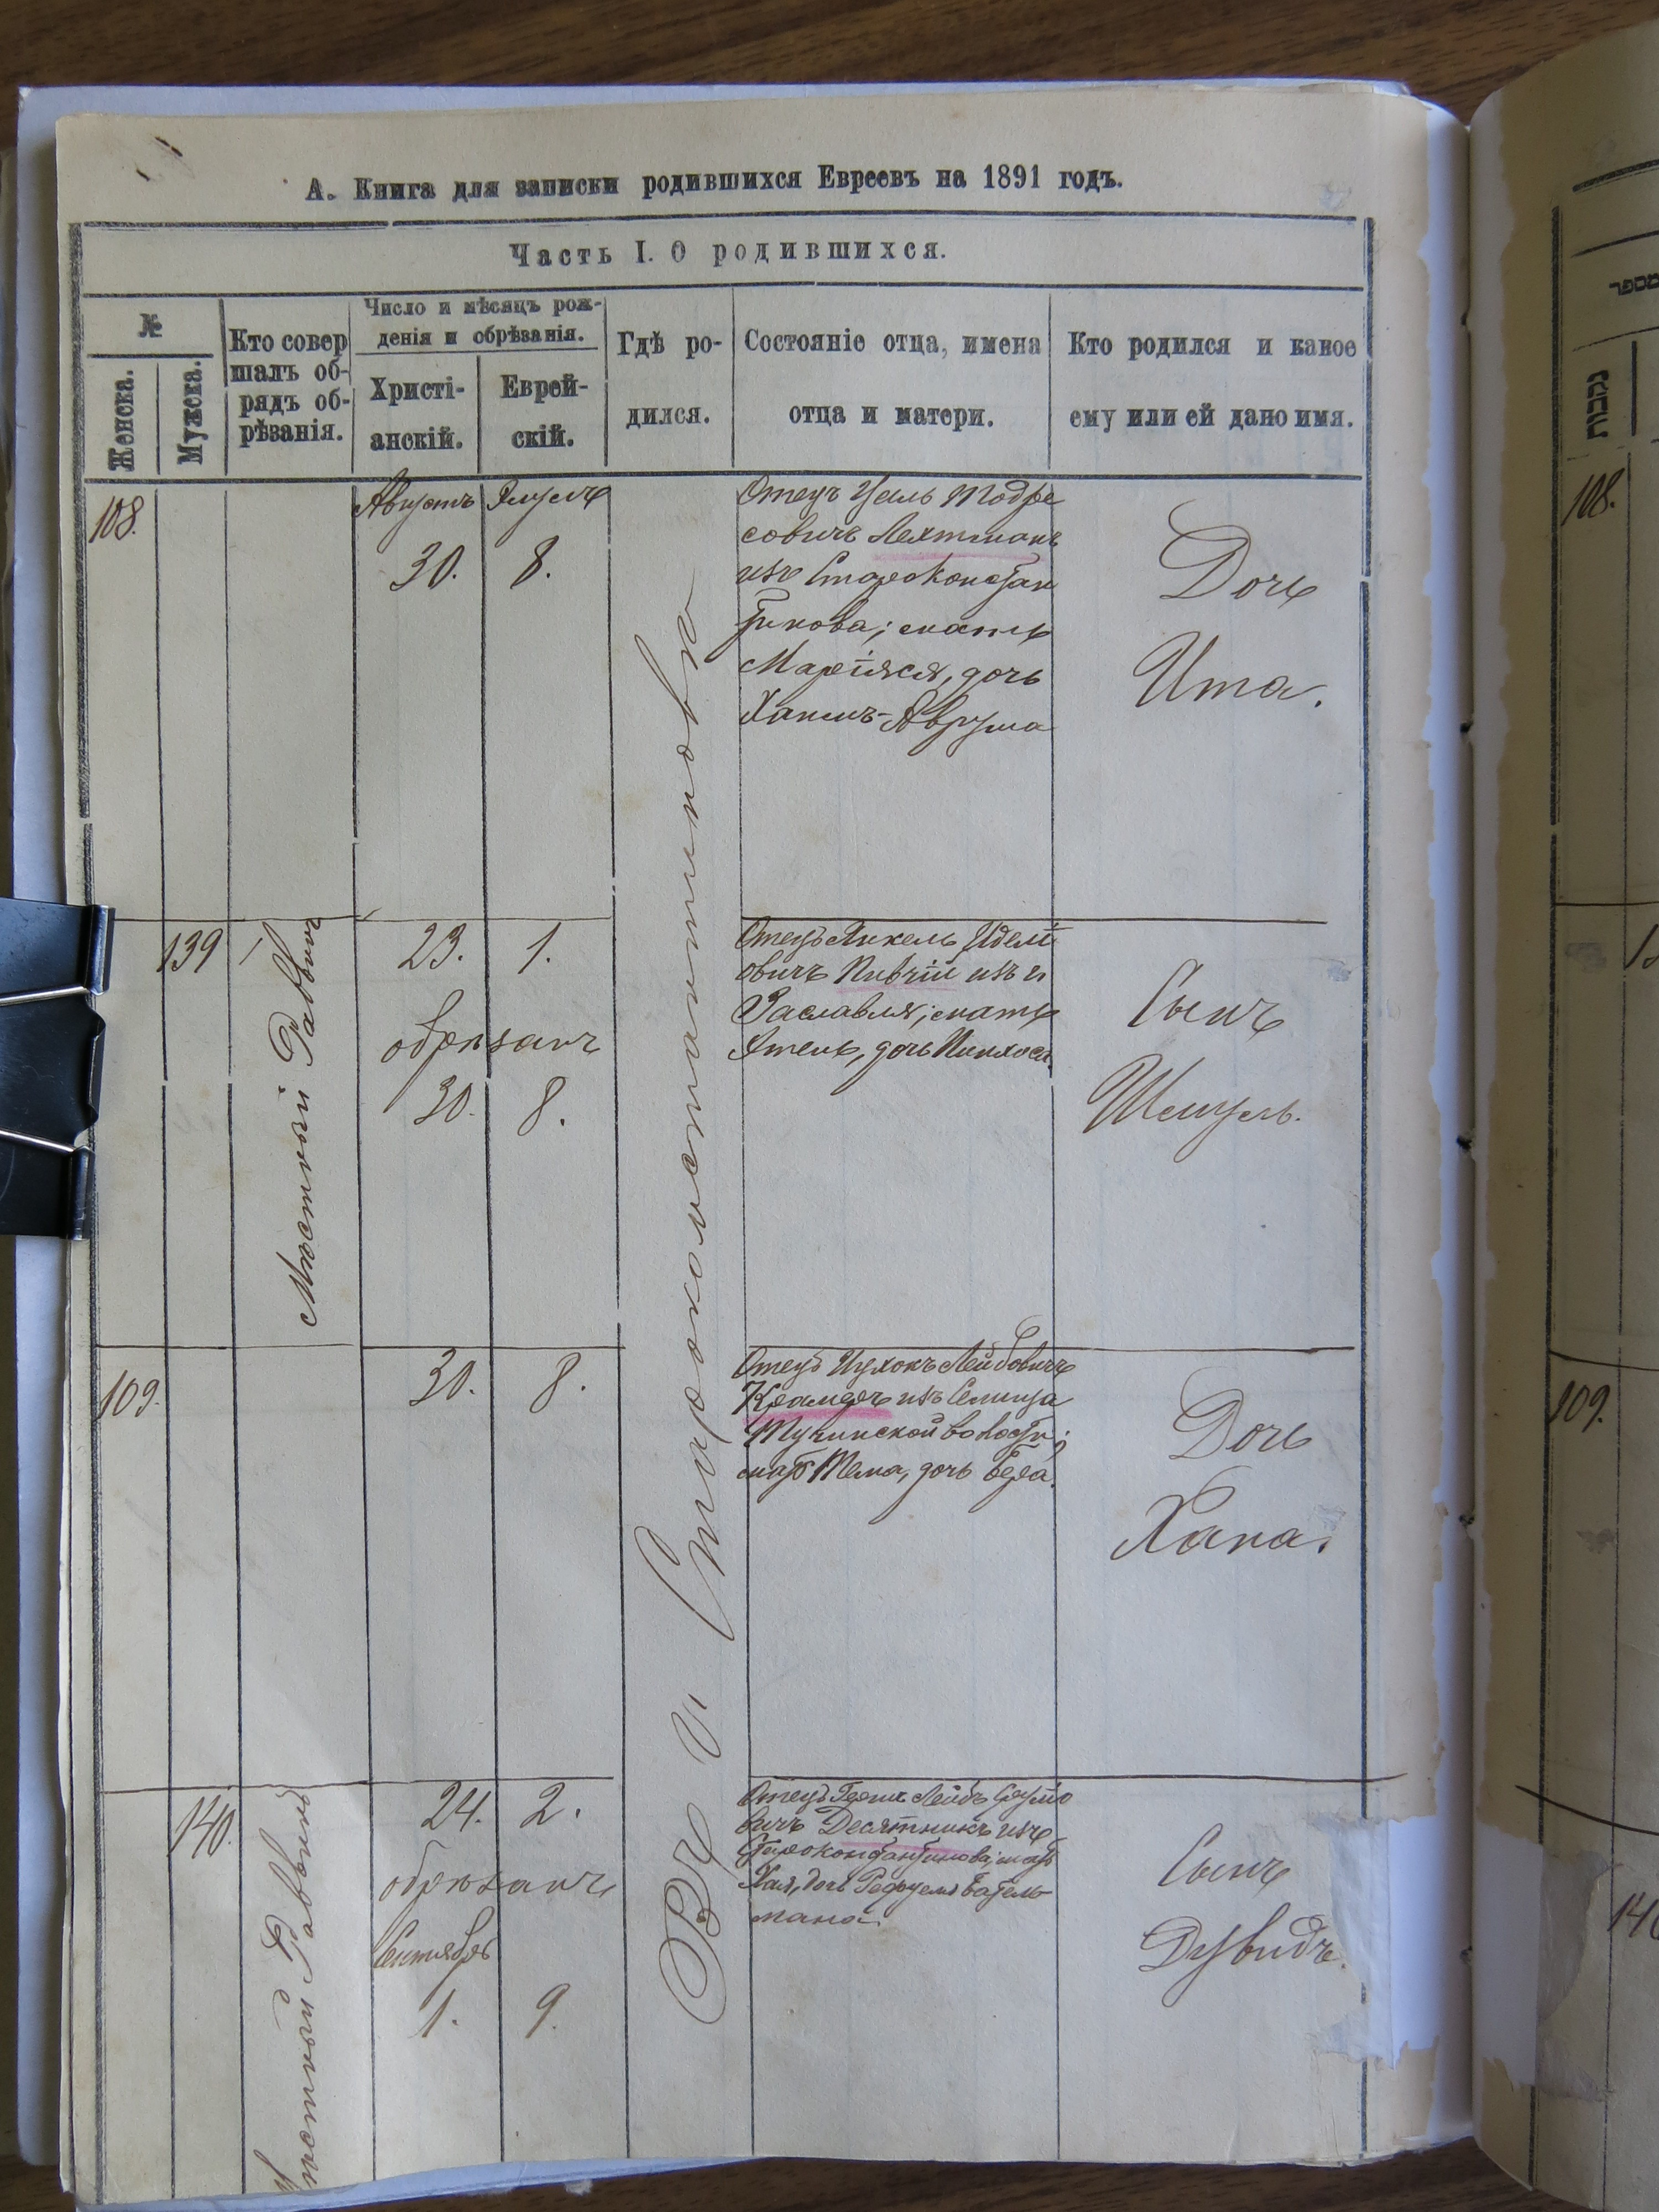 А. Книга для записки родившихся Евреевъ на 1891 годъ.
Часть I. О родившихся.
№
Женска.
Мужска.
Кто совер
шалъ об-
рядъ об-
рѣзанія.
Число и мѣсяцъ рож-
денія и обрѣзанія.
Христі-
анскій.
Еврей-
скій.
Гдѣ ро-
дился.
Состояніе отца, имена
отца и матери.
Кто родился и какое
ему или ей дано имя.
108.
Августъ
Элулъ
30.
8.
Въ г. Староконстантиновѣ
Отецъ Тодре
совичъ Лехтманъ
изъ Староконстан
тинова; мать
Маріяся, дочь
Хаимъ-Аврума
Дочь
Ита.
139
Мѣстный Раввинъ
23.
1.
обрѣзанъ
30.
8.
Отецъ Янкель
овичъ Пивчій изъ г.
Заславля; мать
Этель, дочь Пинхоса.
Сынъ
Шмуель.
109.
30.
8.
Отецъ Ицхокъ Лейбовичъ
Крамеръ изъ
волости;
мать дочь Бера.
Дочь
Хана.
140.
Мѣстный Раввинъ
24.
2.
обрѣзанъ
Сентябрь
1.
9.
Отецъ Гершъ Лейбъ Сруло
вичъ Десятникъ изъ
Староконстантинова; мать
Хая, дочь
мана.
Сынъ
Дувидъ.
מספר
נקבות
108.
109.